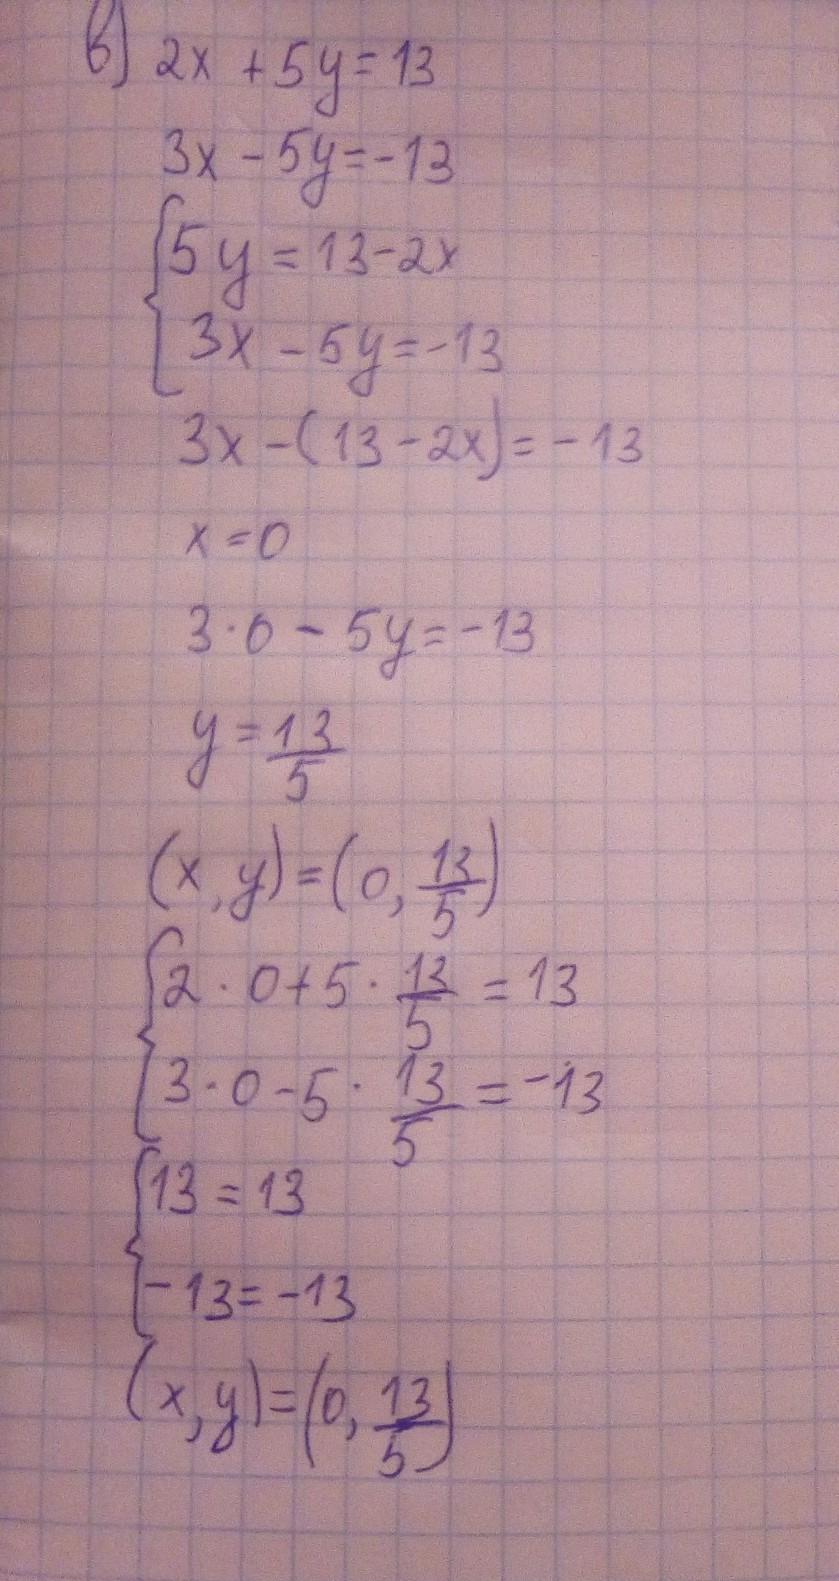 в) 2x + 5y = 13
3x - 5y = -13
{ 5y = 13 - 2x
3x - 5y = -13
3x - (13 - 2x) = -13
x = 0
3 · 0 - 5y = -13
y = 13/5
(x, y) = (0, 13/5)
{ 2 · 0 + 5 · 13/5 = 13
3 · 0 - 5 · 13/5 = -13
{ 13 = 13
-13 = -13
(x, y) = (0, 13/5)